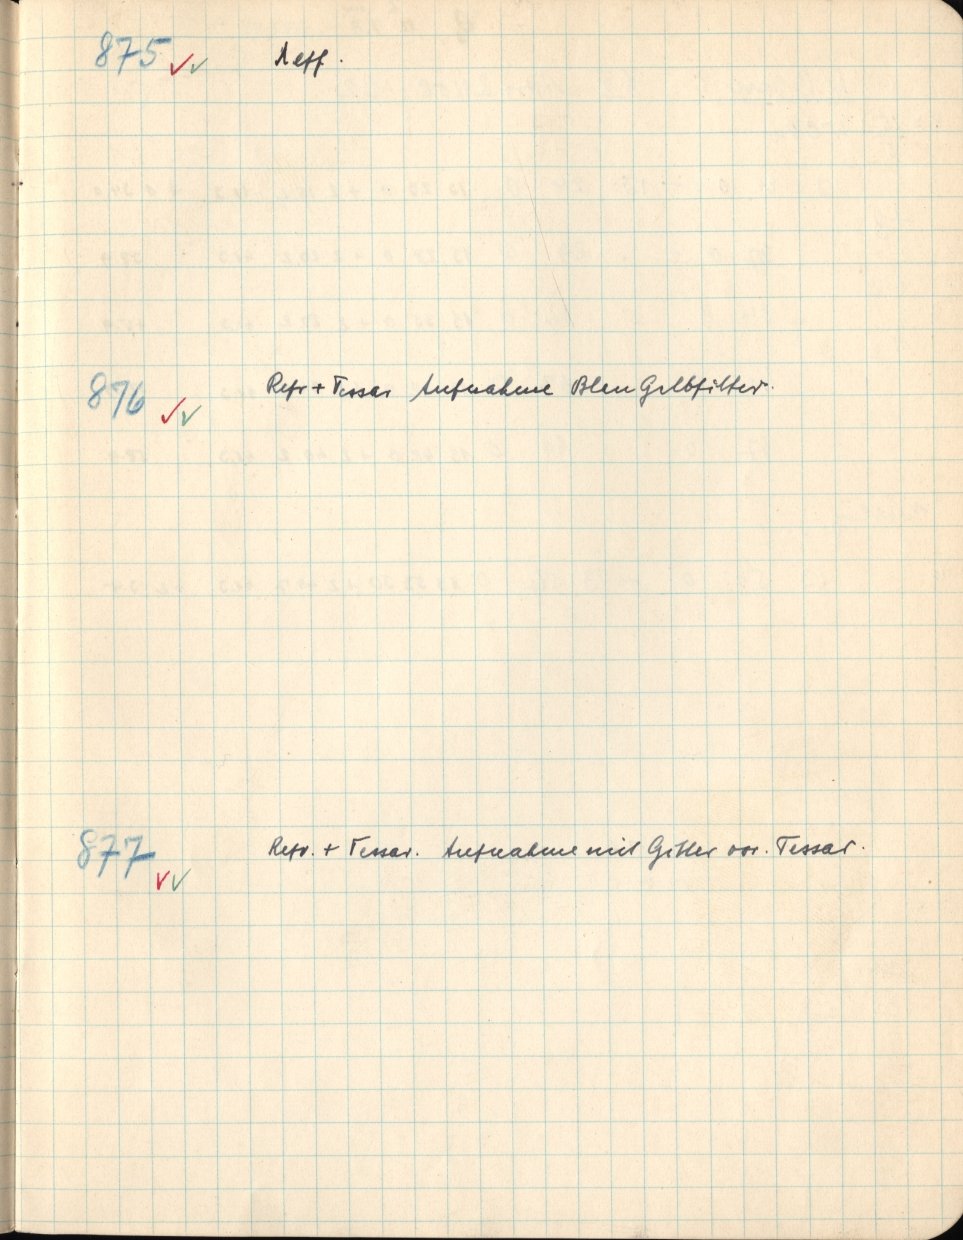 875 λeff.
876 Refr + Tessar Aufnahme Blau Gelbfilter.
877 Refr. + Tessar. Aufnahme mit Gitter vor. Tessar.